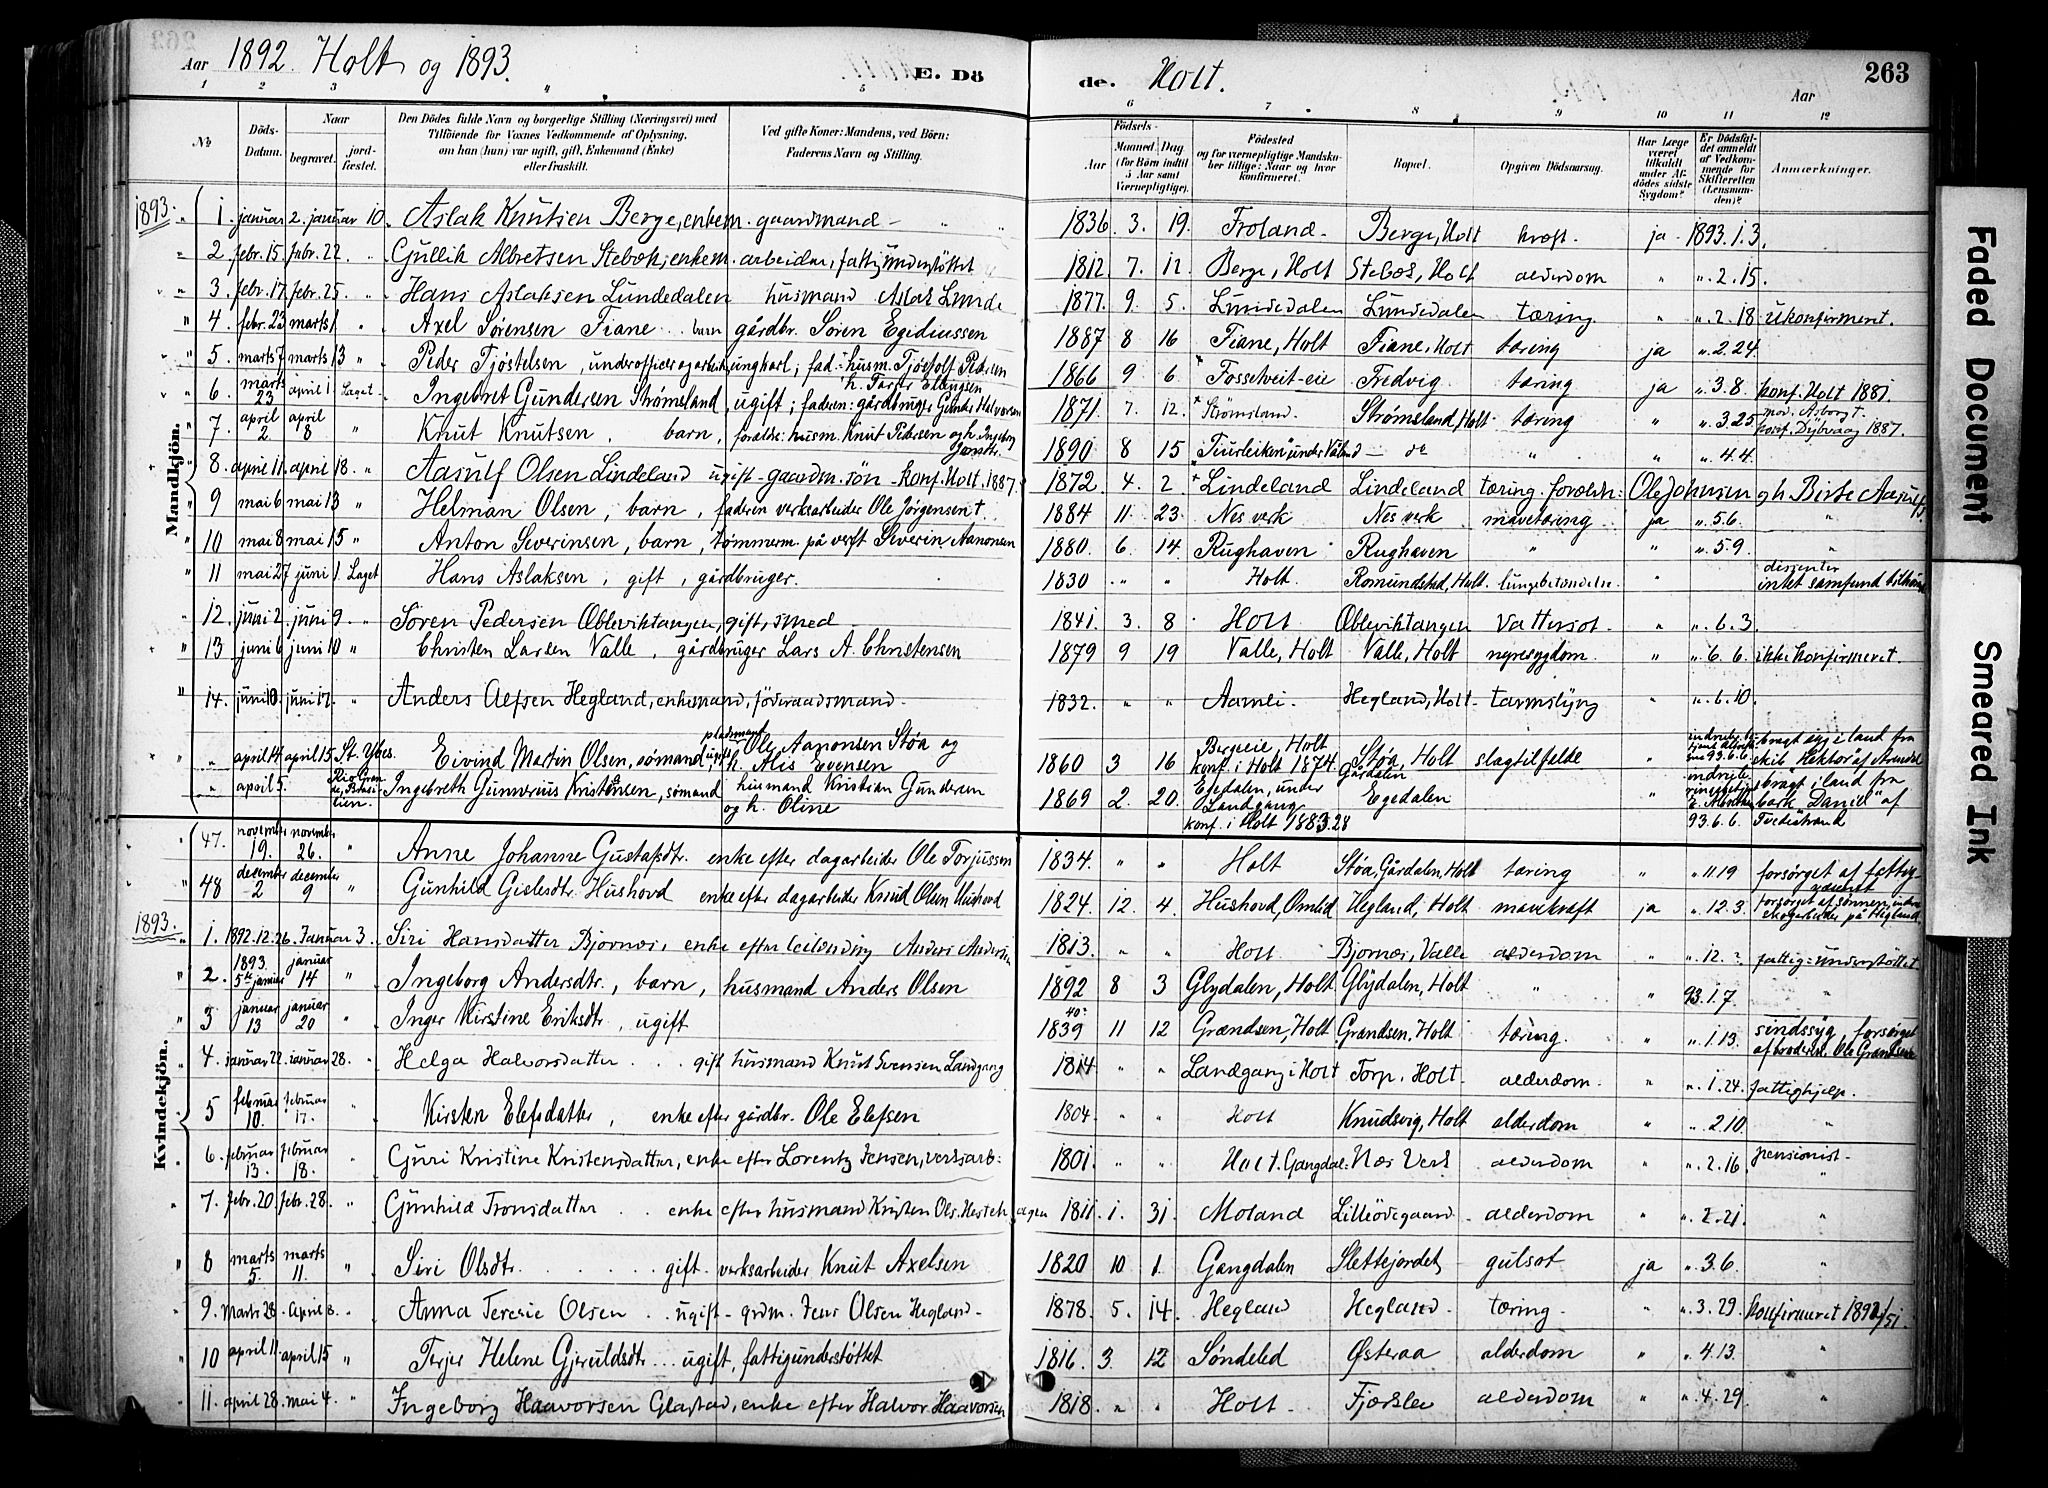 Aar 1892. Holt og 1893.
E. Dö
de. Holt.
263
Aar
1 2 3 4 5 6 7 8 9 10 11 12
№
Döds-Datum.
Naar
begravet.
jordfæstet.
Den Dödes fulde Navn og borgerlige Stilling (Næringsvei) med Tilföiende for Voxnes Vedkommende af Oplysning, om han (hun) var ugift, gift, Enkemand (Enke) eller fraskilt.
Ved gifte Koner: Mandens, ved Börn: Faderens Navn og Stilling.
Födsels-
Aar
Maaned (for Börn indtil 5 Aar samt Værnepligtige).
Dag
Födested og for værnepligtige Mandskaber tillige: Naar og hvor konfirmeret.
Bopæl.
Opgiven Dödsaarsag.
Har Læge været tilkaldt under Afdödes sidste Sygdom?
Er Dödsfaldet anmeldt af Vedkommende for Skifteretten (Lensmanden)?
Anmærkninger.
Mandkjön.
1893. 1. januar 2. januar 10. Aslak Knutsen Berge, enkem. gaardmand - 1836. 3. 19. Froland - Berge, Holt kræft. ja 1893.1.3.
2 febr. 15. febr. 22 " Gullik Albretsen Stebok, enkem. arbeider, fattigunderstöttet 1812. 7. 12. Berge, Holt Stebok, Holt alderdom " ".2.15.
3. febr. 17. febr. 25. " Hans Aslaksen Lundedalen husmand Aslak Lunde 1877. 9. 5. Lundedalen Lundedalen tæring " ".2.18 ukonfirmeret.
4. febr. 23 marts 1 " Axel Sørensen Fiane .. barn gårdbr. Søren Egidiussen 1887 8 16 Fiane, Holt Fiane, Holt tæring ja ".2.24.
5. marts 7 marts 13 " Peder Tjöstelsen, underofficer og arbeider, ungkarl; fad. husm. Tjöstolf Pedersen 1866 9 6. Fosstveit-eie Fredvig. tæring ja ".3.8. konf. Holt 1881.
6. marts 23 april 1 Laget. Ingebret Gundersen Strømsland, ugift; faderen: gårdbruger Gunder Halvorsen 1871. 7. 12. Strømsland. Strømsland, Holt tæring " ".3.25 konf. Dybvaag 1887.
7. april 2 april 8 " Knut Knutsen. barn, forældre: husm. Knut Pedersen og h. Ingeborg 1890 8 15 under - do " " ".4.4.
8. april 11. april 18. " Aasulf Olsen Lindeland ugift - gaardm. sön - konf. Holt. 1887. 1872. 4. 2 Lindeland Lindeland tæring. foreldr: Ole Johnsen og h. Birte Aasulfs
9 mai 6 mai 13 " Helman Olsen, barn, faderen verksarbeider Ole Jörgensen †. 1884 11. 23. Nes verk Nes verk mavetæring. ja ".5.6. "
10 mai 8 mai 15 " Anton Severinsen, barn, tømmerm. på verft Severin Aanonsen 1880. 6. 14. Rughaven Rughaven " " ".5.9. "
11 mai 27 juni 1 Laget Hans Aslaksen, gift, gårdbruger. 1830 " " Holt. Romundstad, Holt. lungebetændelse. " dissenter intet samfund
12. juni 2. juni 9 " Sören Pedersen Obleviktangen, gift, smed - 1841. 3. 8 Holt Obleviktangen Vattersot. " ".6.3.
13 juni 6 juni 10 " Christen Larsen Valle, gårdbruger Lars A. Christensen 1879 9 19 Valle, Holt Valle, Holt nyresygdom. " ".6.6. ikke konfirmeret.
14. juni 10. juni 17. " Anders Alfsen Hegland, enkemand, föderaadsmand. 1832. " " Aamli. Hegland, Holt. tarmslyng " ".6.10.
" april 14 april 15 St. Ybes. Eivind Martin Olsen, sømand, ugift pladsmand Ole Aanonsen Støa og h. Alis Evensen 1860 3 16 Bergeie, Holt konf. i Holt 1874. Støa, Holt slagtilfelde 93.6.6. skib Hektor af Arendal
" april 5. Rio Grande, Brasilien. Ingebreth Gunnerius Kristensen, sømand husmand Kristian Gundersen og h. Oline 1869 2. 20. Egedalen, under Landgang konf. i Holt 1883.28 Gårdalen Egedalen " 93.6.6. bragt i land fra bark "Daniel" af Tvedestrand
Kvindekjön.
47. november 19. november 26. " Anne Johanne Gustafsdtr. enke efter dagarbeider Ole Torjussen 1834. " " Holt Støa, Gårdalen, Holt tæring " ".11.19 forsörget af fattigvæsenet
48 december 2 december 9 " Gunhild Gislesdtr. Hushovd enke efter dagarbeider Knud Olsen Hushovd 1824. 12. 4. Hushovd, Omlid Hegland, Holt mavekræft ja ".12.3. forsörget af sønnen, skogarbeider på Hegland.
1893. 1. 1892.12.26. Januar 3. " Siri Hansdatter Bjornæs, enke efter Anders Andersen 1813. " " Holt Bjornæs, Valle alderdom " ".12.? fattig=understöttet.
2. 1893. 5te januar januar 14 " Ingeborg Andersdtr., barn, husmand Anders Olsen 1892 8 3 Glydalen, Holt Glydalen, Holt " " 93.1.7. "
3 januar 13 januar 20 " Inger Kirstine Eriksdtr, ugift 1839 40? 11 12 Grændsen, Holt Grændsen, Holt tæring. " ".1.13. sindssyg, forsørget af broderen Ole Grændsen
4. januar 22. januar 28. " Helga Halvorsdatter ... gift husmand Knut Svensen Landgang 1814 " " Landgang i Holt Torp, Holt. alderdom. " ".1.24. fattighjelp.
5 februar 10. februar 17. " Kirsten Elefsdatter, enke efter gårdbr. Ole Elefsen 1804. " " Holt Knudsvig, Holt alderdom " ".2.10. "
6. februar 13. februar 18. " Guri Kristine Kristensdatter, enke efter Lorentz Jensen, verksarb: 1801. " " Holt. Gangdal= Næs Verk alderdom " ".2.16. pensionist.
7. febr. 20 febr. 28. " Gunhild Tronsdatter .. enke efter husmand Kristen Ols. Hestehagen 1811. 1. 31. Moland Lilleödegaard. alderdom " ".2.21. "
8 marts 5. marts 11. " Siri Olsdtr. ........ gift. verksarbeider Knut Axelsen 1820 10 1. Gangdalen Slettejordet gulsot ja ".3.6. "
9. Marts 28. April 3. " Anna Teresie Olsen .. ugift - grdm. Jens Olsen Hegland - 1878. 5. 14. Hegland Hegland. tæring. " ".3.29. Konfirmeret 1892/51.
10 april 11. april 15 " Terjer Helene Gjeruldsdtr ... ugift, fattigunderstøttet 1816. 3. 12 Søndeled Østeraa alderdom " ".4.13. "
11. april 28. mai 4. " Ingeborg Haavorsen Glastad, enke efter Halvor Haavorsen 1818. " " Holt. Fjærslea alderdom " ".4.29. "
Faded Document
Smeared Ink